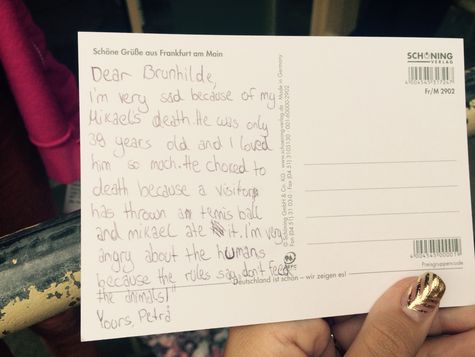 Schöne Grüße aus Frankfurt am Main
Dear Brunhilde,
i'm very sad because of my
Mikael's death. He was only
39 years old and I loved
him so much. He choked to
death because a visitor
has thrown a tennis ball
and Mikael ate it. I'm very
angry about the humans
because the rules say, don't feed
the animals!
Yours, Petra
Deutschland ist schön – wir zeigen es!
SCHÖNING
VERLAG
Fr/M 2902
Preisgruppencode